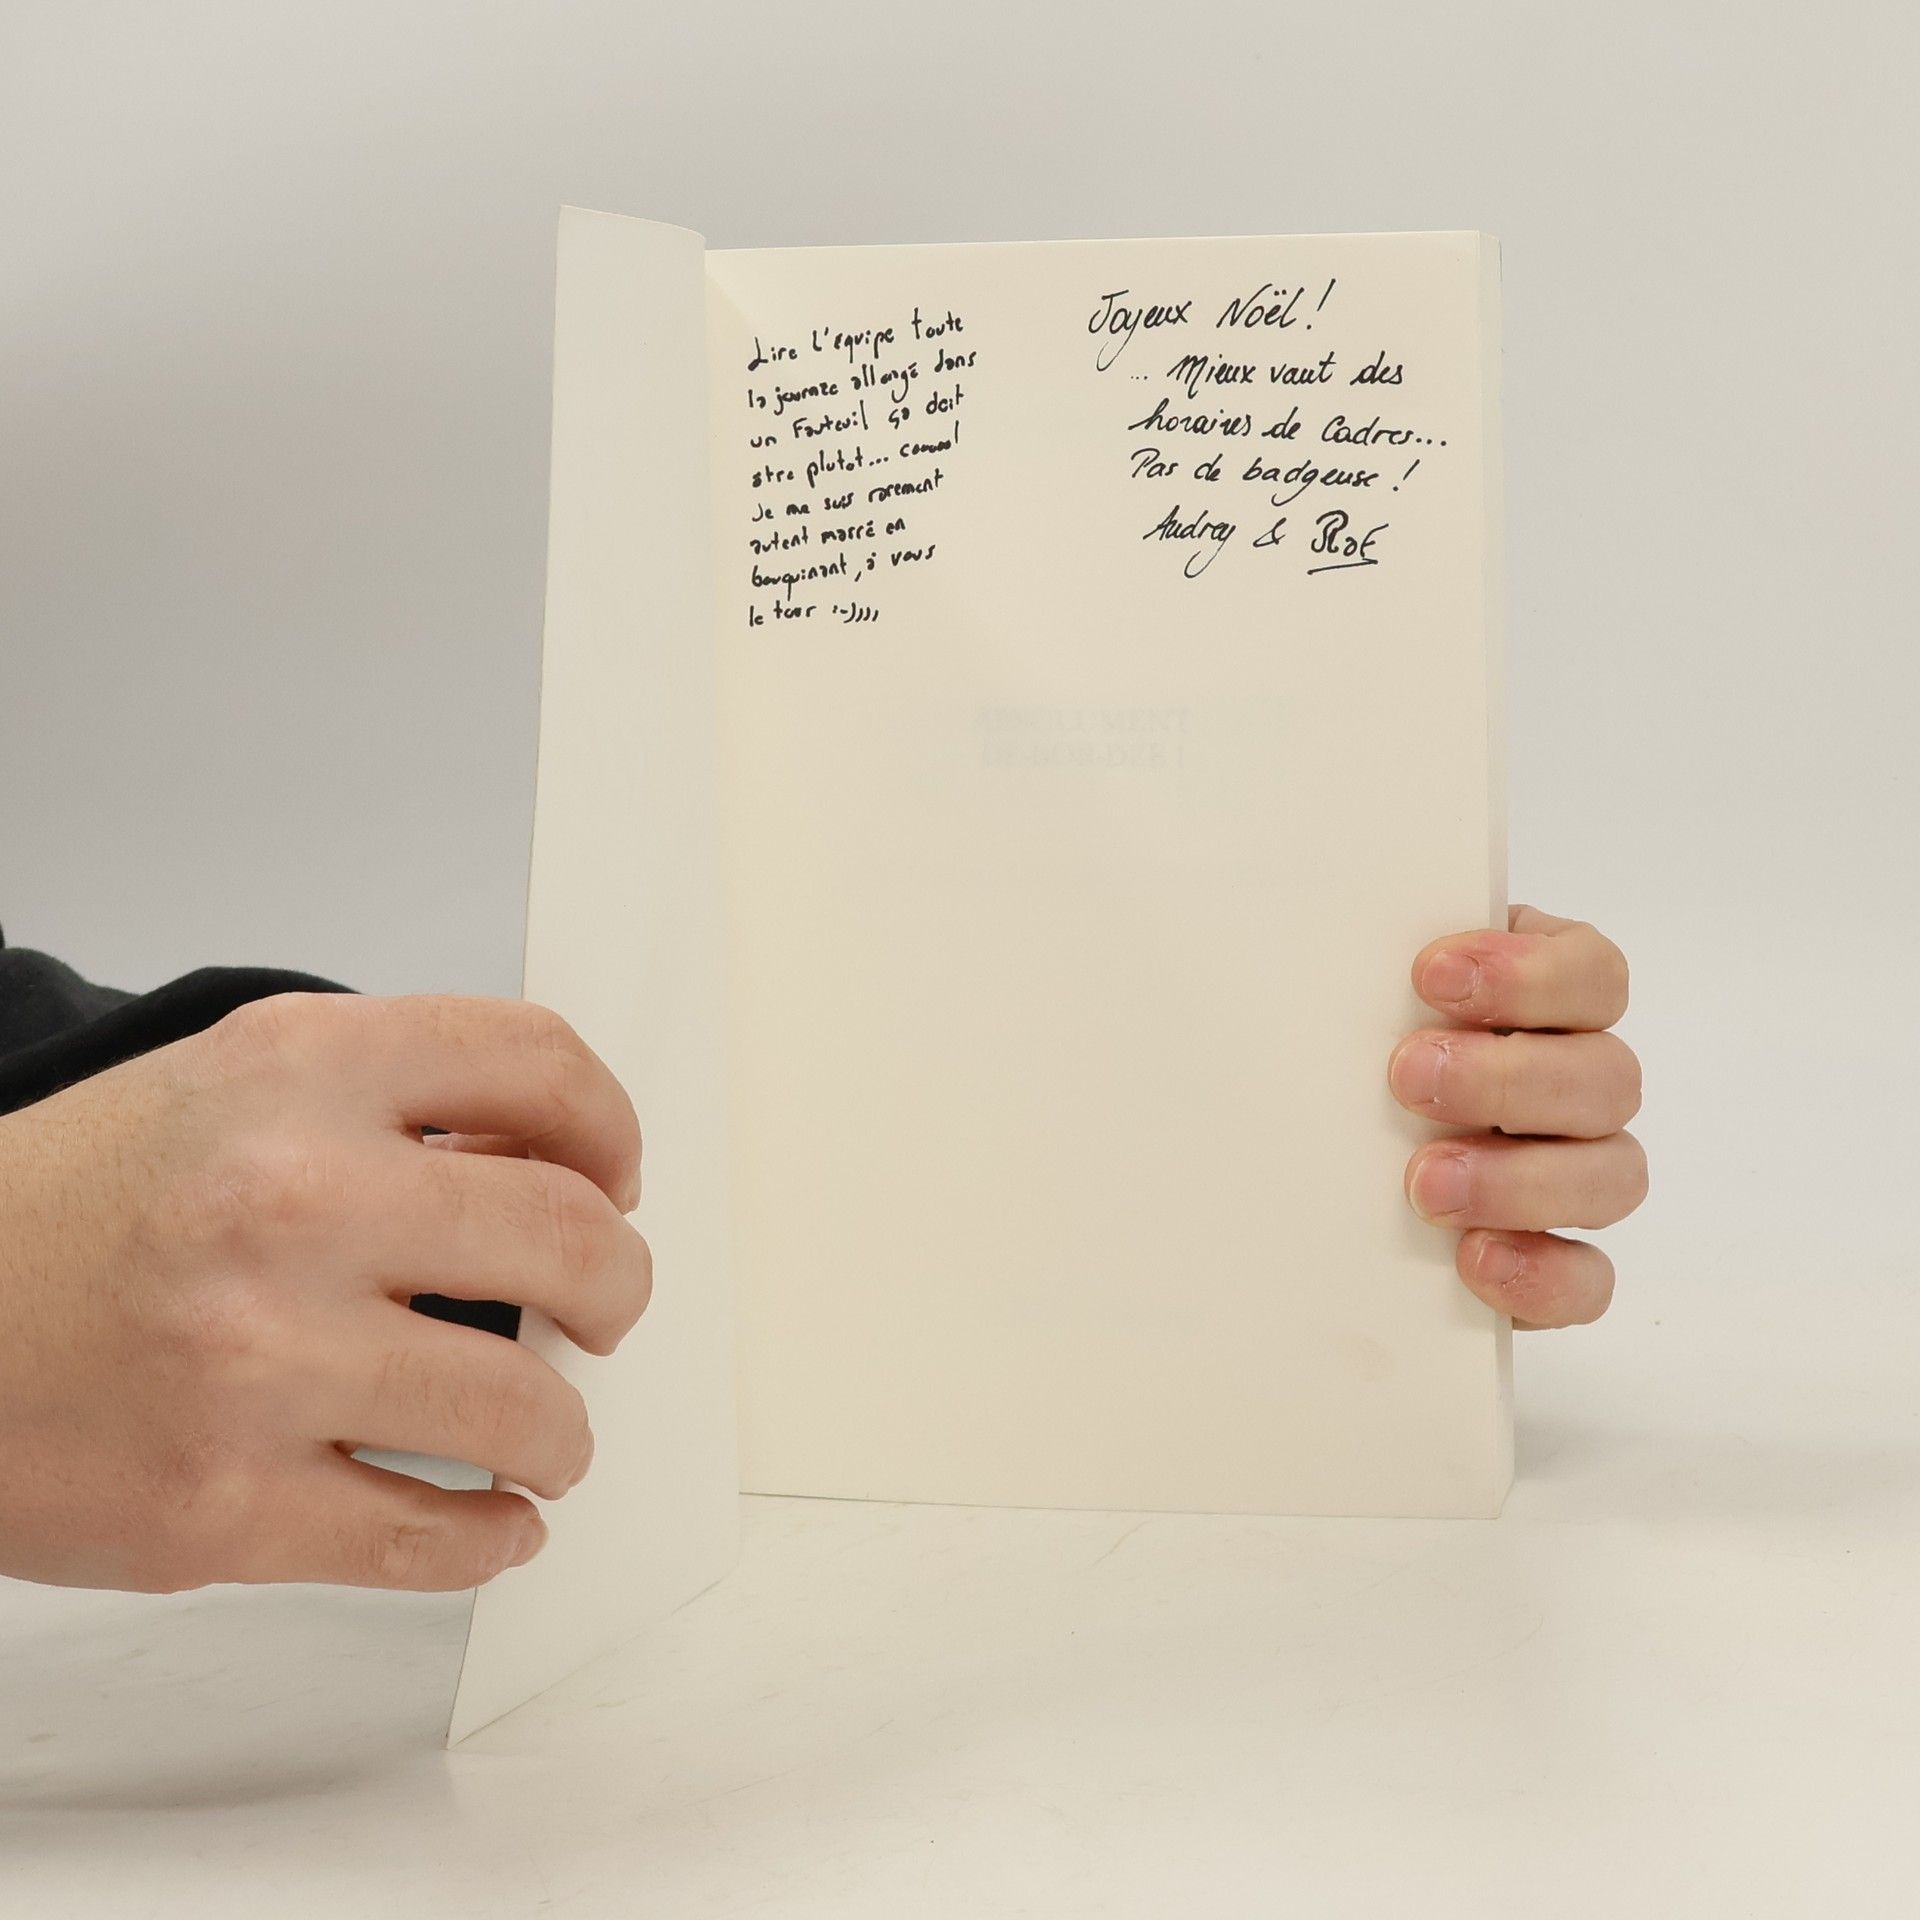 Lire l'équipe toute
la journée allongé dans
un Fauteuil ça doit
être plutot... cooool
Je me suis rarement
autent marré en
bouquinant, à vous
le tour :-))))
Joyeux Noël !
... Mieux vaut des
horaires de Cadres...
Pas de badgeuse !
Audrey & Raf
ABSOLUMENT
DÉ-BOR-DÉE !